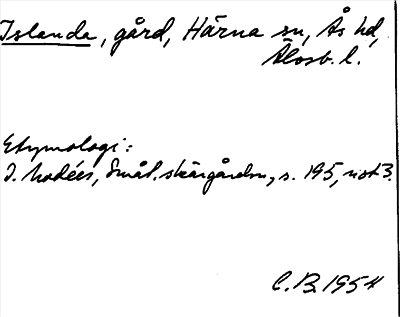 Islanda, gård, Härna sn, Ås hd,
Älvsb. l.
Etymologi:
I. Modéer, Smål. skärgårdsn, s. 195, not 3.
C.B. 1954